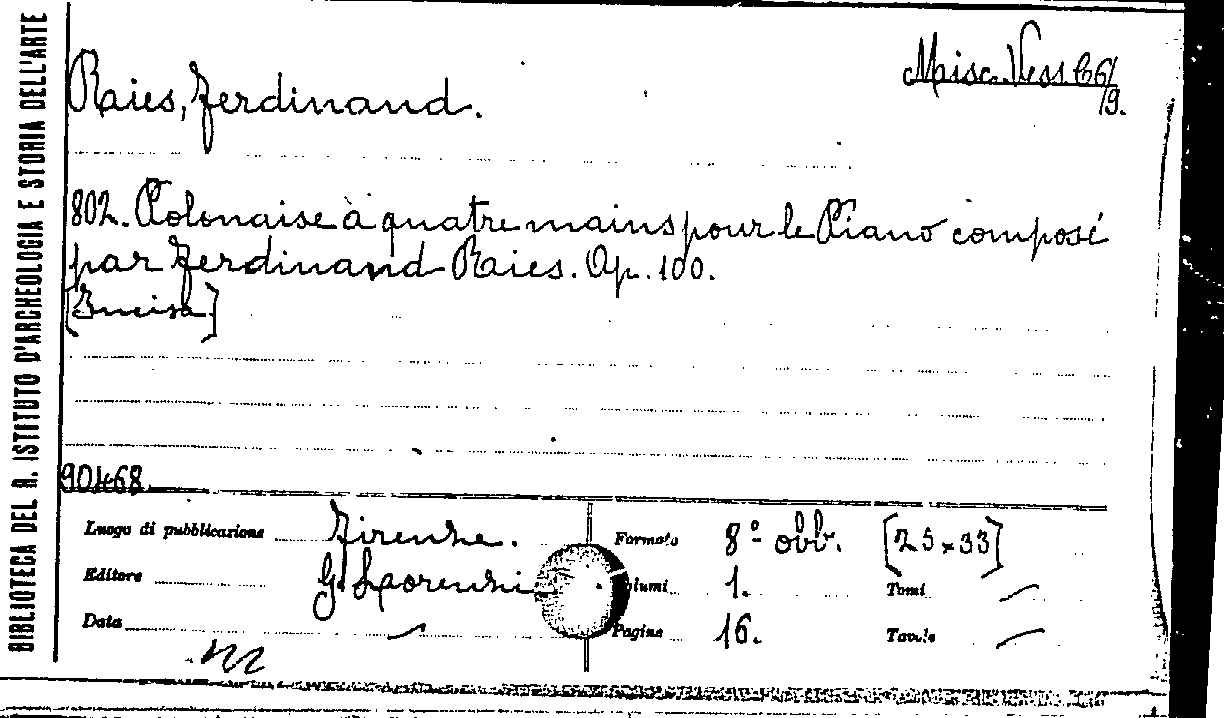 BIBLIOTECA DEL R. ISTITUTO D'ARCHEOLOGIA E STORIA DELL'ARTE
Misc. Vess. 66/9.
Raies, Ferdinand.
802. Polonaise à quatre mains pour le Piano composé
par Ferdinand Raies. Op. 100.
[Incisa]
90468.
Luogo di pubblicazione Firenze. Formato 8º obb. [25×33]
Editore G. Lorenzi Volumi 1. Tomi
Data Pagine 16. Tavole